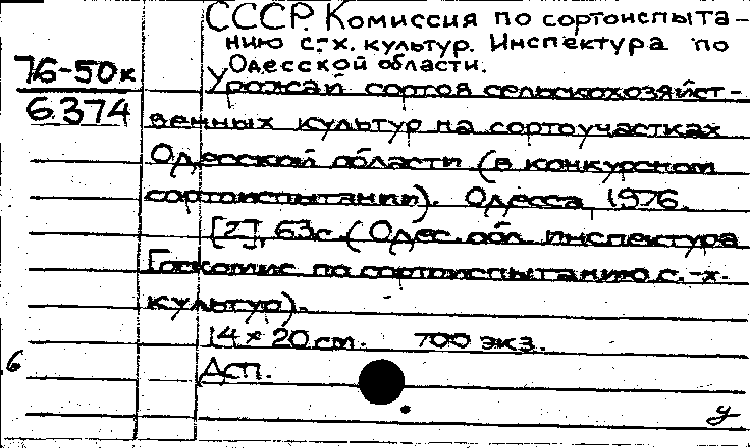 СССР. Комиссия по сортоиспыта-
нию с.-х. культур. Инспектура по
Одесской области.
76-50к
6374
Урожай сортов сельскохозяйст-
венных культур на сортоучастках
Одесской области (в конкурсном
сортоиспытании). Одесса, 1976.
[2], 63с. (Одес. обл. инспектура
Госкомис. по сортоиспытанию с.-х.
культур).
14 × 20 cm. 700 экз.
Дсп.
6
у